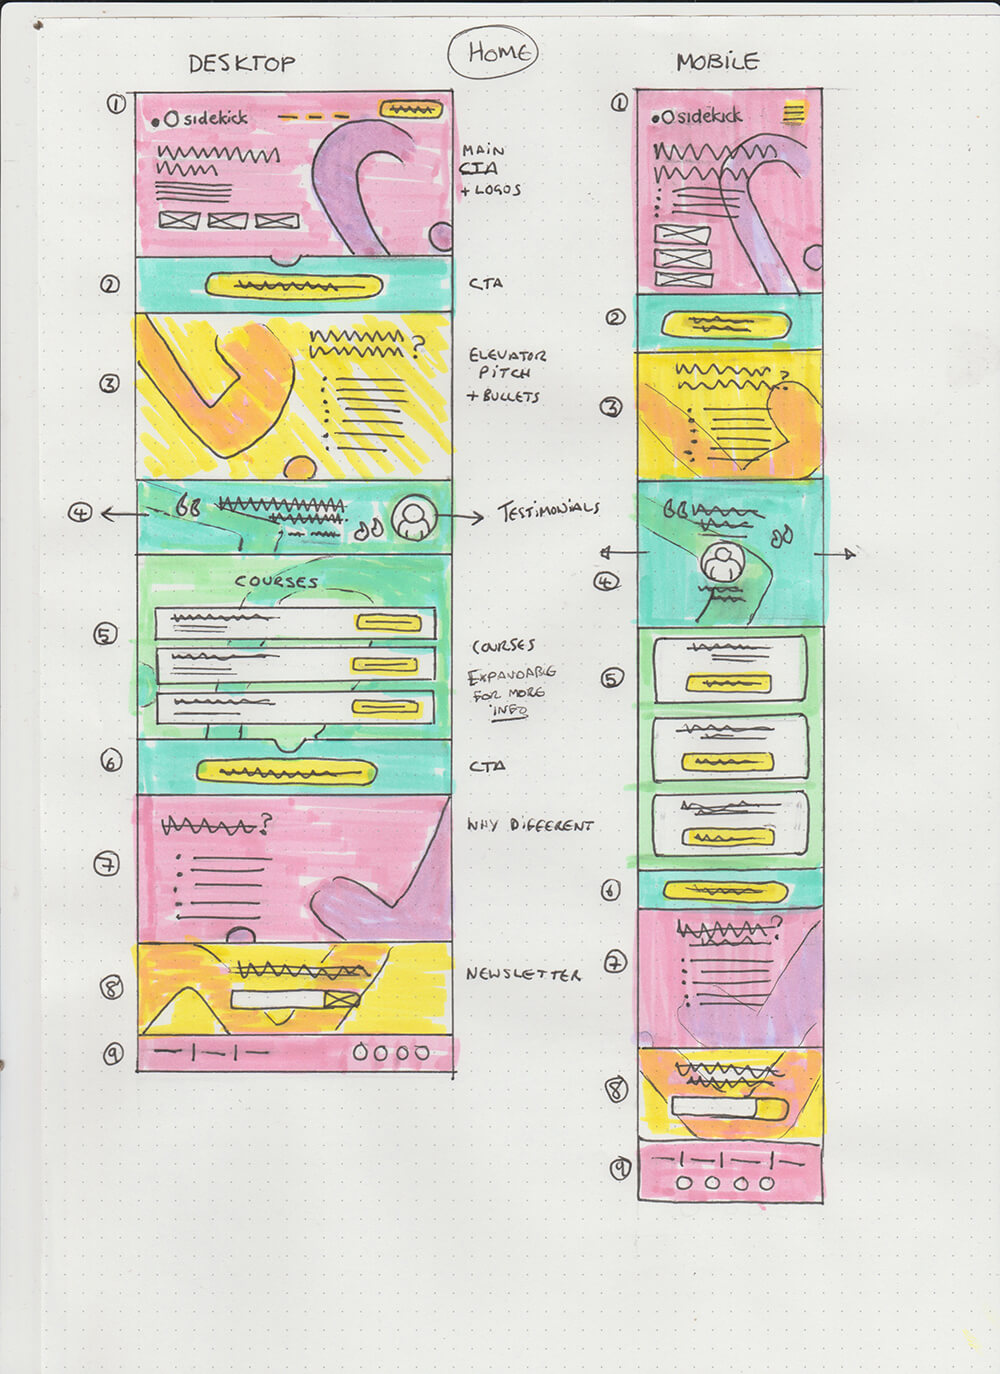 HOME
DESKTOP
MOBILE
1
sidekick
MAIN
CTA
+ LOGOS
2
CTA
3
?
ELEVATOR
PITCH
+ BULLETS
4
TESTIMONIALS
5
COURSES
COURSES
EXPANDABLE
FOR MORE
INFO
6
CTA
7
?
WHY DIFFERENT
8
NEWSLETTER
9
1
sidekick
2
3
?
4
5
6
7
?
8
9